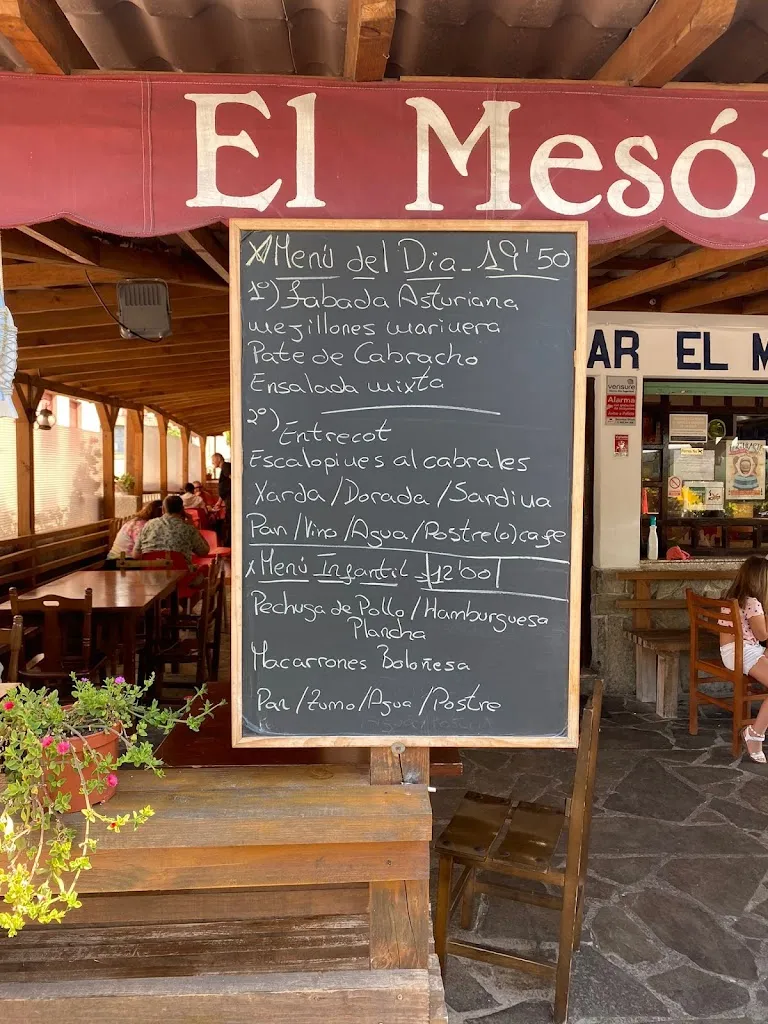 El Mesó
AR EL M
verisure
Alarma
x Menú del Dia - 19'50
1º) Fabada Asturiana
mejillones marinera
Pate de Cabracho
Ensalada mixta
2º) Entrecot
Escalopines al cabrales
Xarda / Dorada / Sardina
Pan / Vino / Agua / Postre (o) cafe
x Menú Infantil - 12'00
Pechuga de Pollo / Hamburguesa
Plancha
Macarrones Boloñesa
Pan / Zumo / Agua / Postre